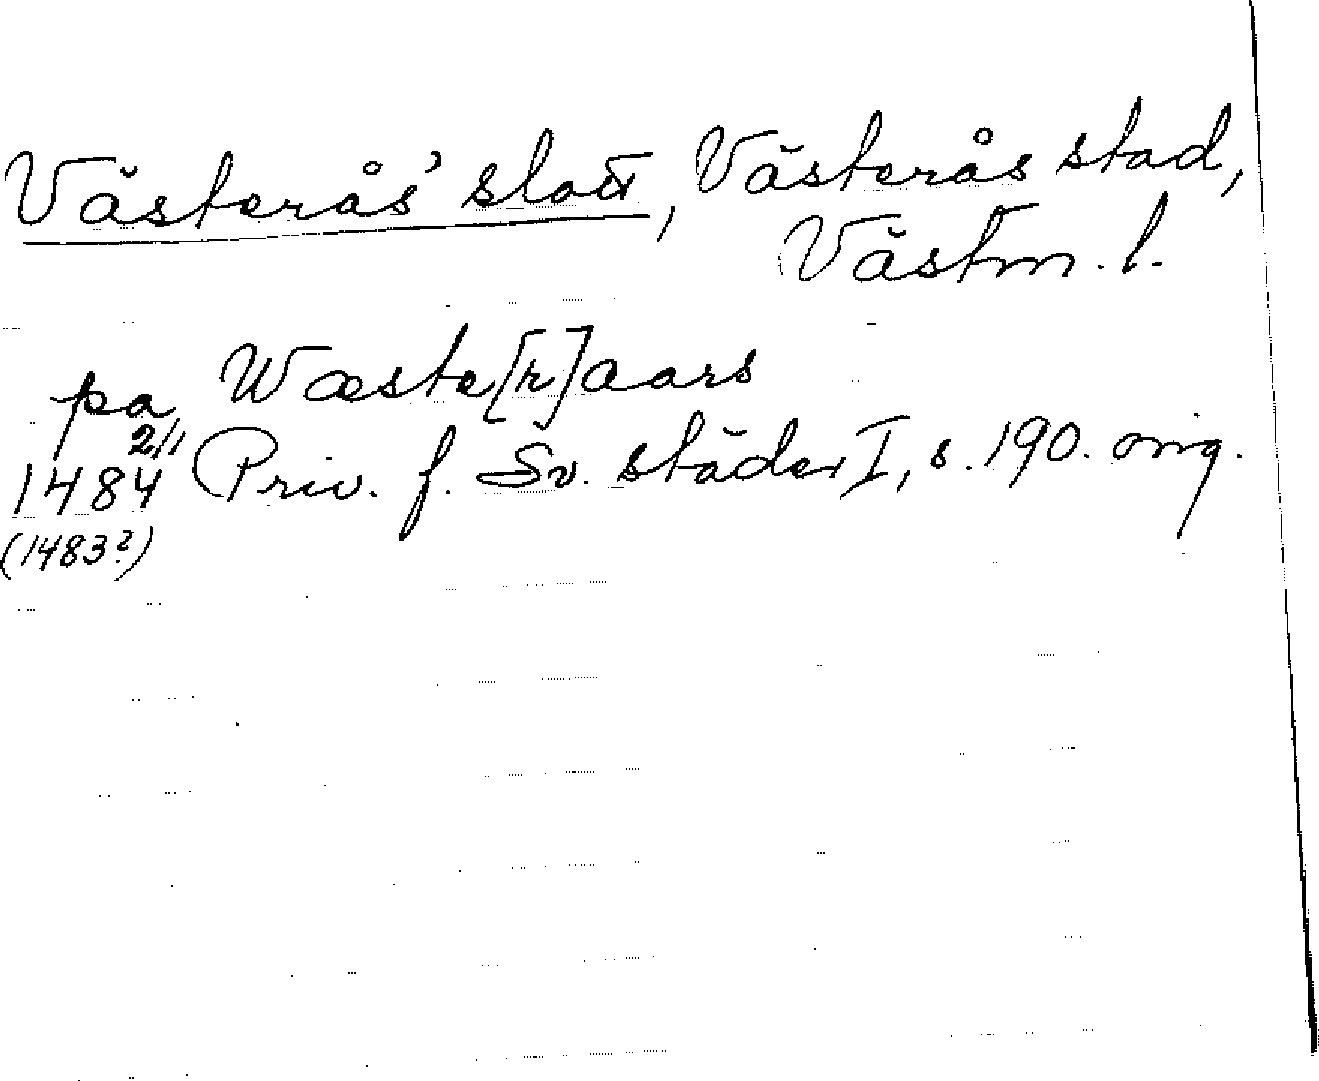 Västerås' slott, Västerås stad,
Västm. l.
pa Wæste[r]aars
2/1
1484 Priv. f. Sv. städer I, s. 190. orig.
(1483?)